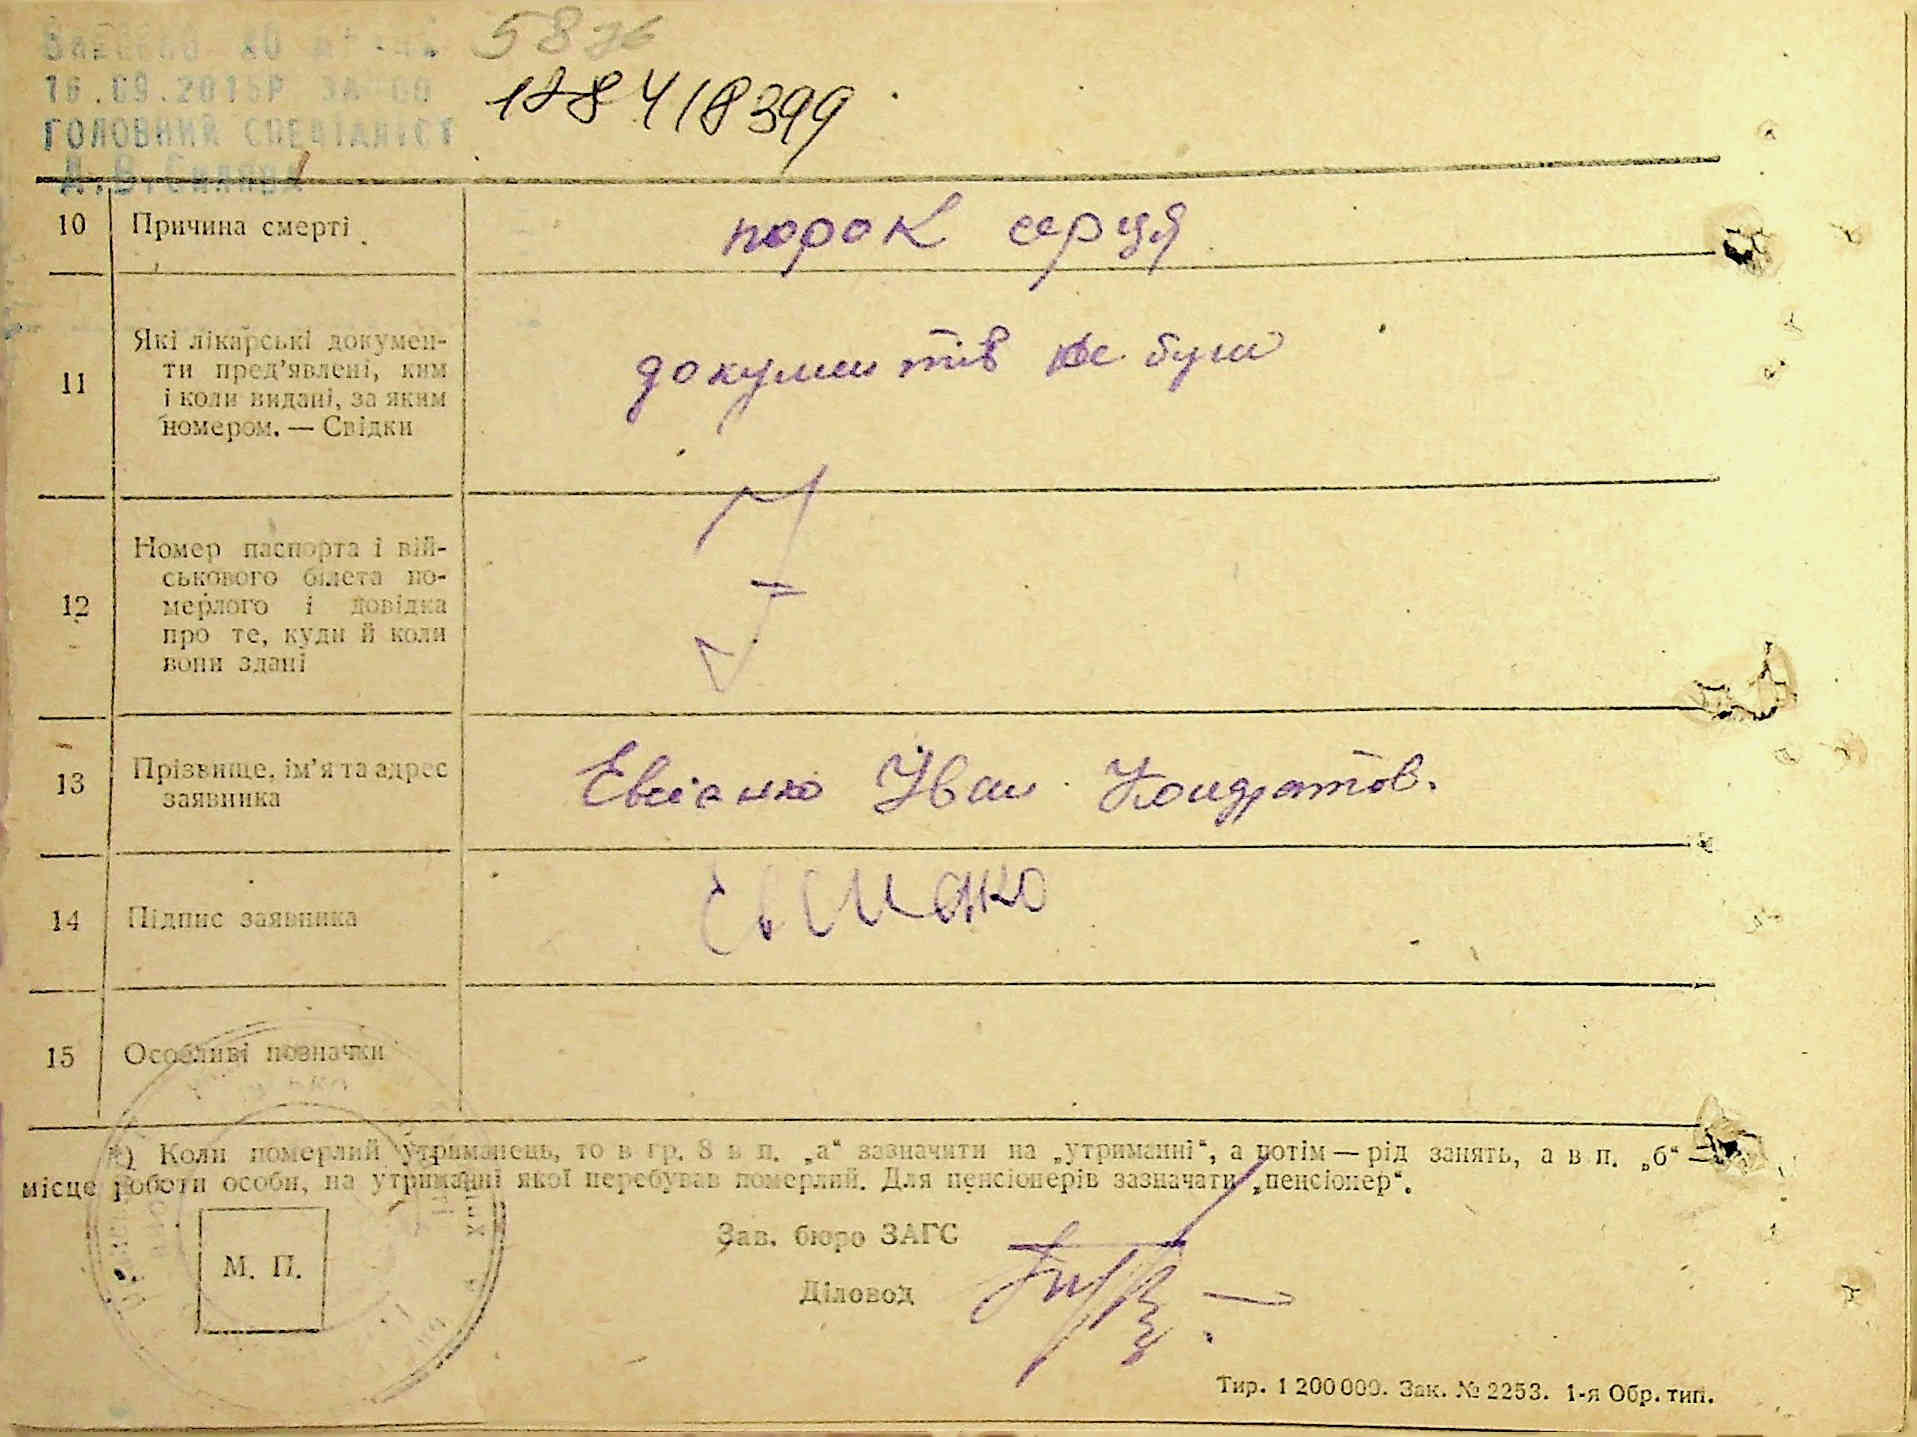 16.09.2015Р
ГОЛОВНИЙ СПЕЦІАЛІСТ
10 Причина смерті
порок серця
11 Які лікарські докумен-
ти пред’явлені, ким
і коли видані, за яким
номером. — Свідки
документів не були
12 Номер паспорта і вій-
ськового білета по-
мерлого і довідка
про те, куди й коли
вони здані
13 Прізвище, ім’я та адрес
заявника
Іван Кондратов.
14 Підпис заявника
15 Особливі позначки
*) Коли померлий утриманець, то в гр. 8 в п. „а“ зазначити на „утриманні“, а потім — рід занять, а в п. „б“ —
місце роботи особи, на утриманні якої перебував померлий. Для пенсіонерів зазначати „пенсіонер“.
М. П.
Зав. бюро ЗАГС
Діловод
Тир. 1 200 000. Зак. № 2253. 1-я Обр. тип.